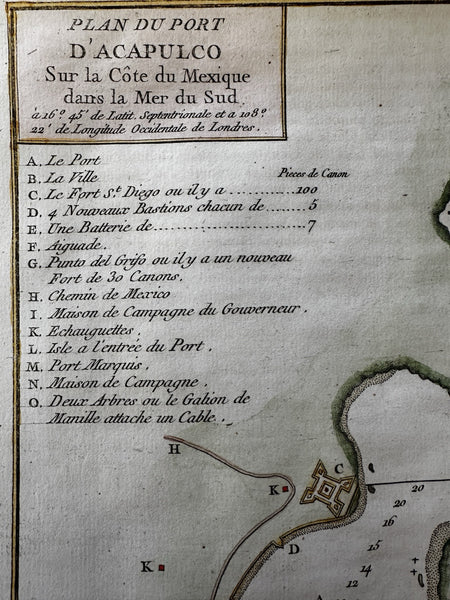 PLAN DU PORT
D'ACAPULCO
Sur la Côte du Mexique
dans la Mer du Sud
à 16º 45' de Latit. Septentrionale et a 108º
22' de Longitude Occidentale de Londres.
A. Le Port
B. La Ville Pieces de Canon
C. Le Fort S.t Diego ou il y a ............ 100
D. 4 Nouveaux Bastions chacun de ...... 5
E. Une Batterie de ........................ 7
F. Aiguade.
G. Punto del Grifo ou il y a un nouveau
Fort de 30 Canons.
H. Chemin de Mexico
I. Maison de Campagne du Gouverneur.
K. Echauguettes.
L. Isle a l'entrée du Port.
M. Port Marquis.
N. Maison de Campagne.
O. Deux Arbres ou le Galion de
Manille attache un Cable.
H
C
K
20
20
16
D
15
K
14
12
A